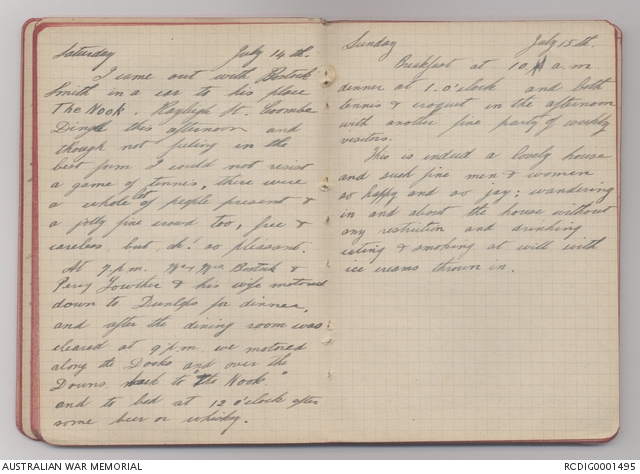 Saturday July 14th.
I came out with Bostock
Smith in a car to his place
The Nook. Rayleigh St. Coombe
Dingle this afternoon and
though not feeling in the
best form I could not resist
a game of tennis, there were
a whole lot of people present &
a jolly fine crowd too, free &
careless, but, oh! so pleasant.
At 7 p.m. Mr & Mrs Bostock &
Percy Lowther & his wife motored
down to Dunlops for dinner,
and after the dining room was
cleared at 9 p.m. we motored
along the Docks and over the
Downs back to "The Nook."
and to bed at 12 o'clock after
some beer or whisky.
Sunday July 15th.
Breakfast at 10 a.m
dinner at 1. o'clock and both
tennis & croquet in the afternoon
with another fine party of weekly
visitors.
This is indeed a lovely house
and such fine men & women
so happy and so jay; wandering
in and about the house without
any restriction and drinking
eating & smoking at will with
ice creams thrown in.
AUSTRALIAN WAR MEMORIAL RCDIG0001495